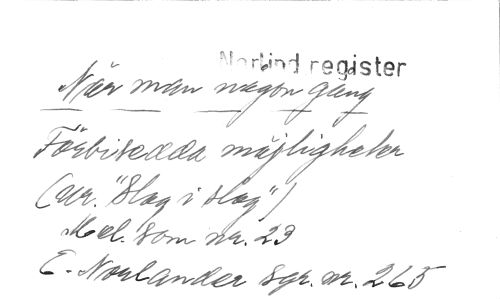 Norlind register
När man någon gång
Förbisedda möjligheter
(ur. "Slag i slag")
Mel. som nr. 23
E. Norlander sgr. nr. 265